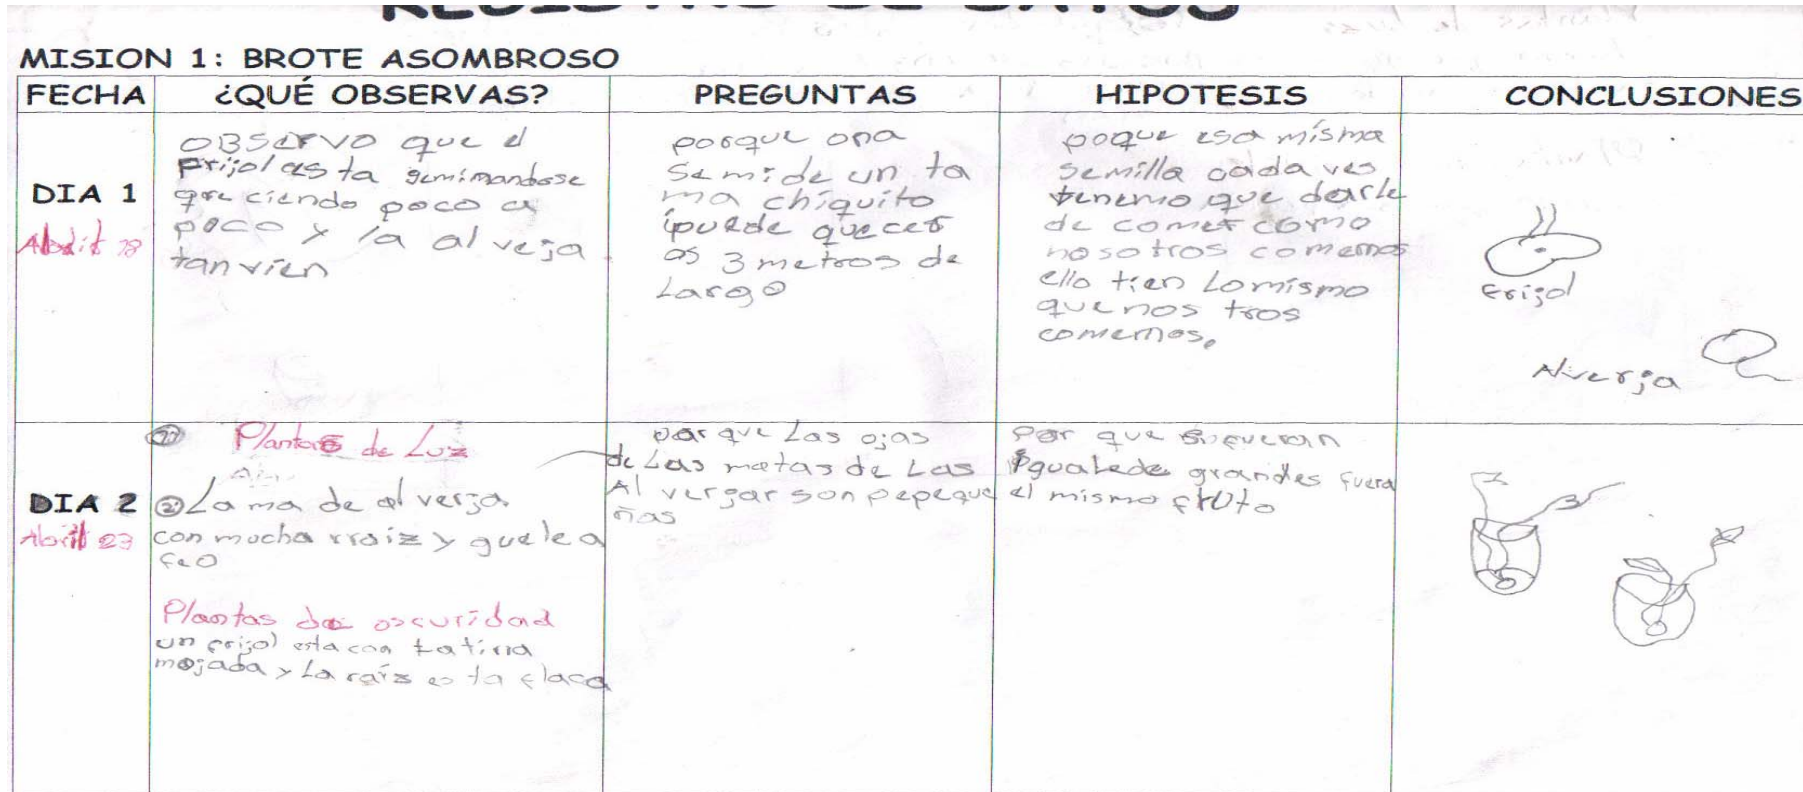 REGISTRO DE DATOS
MISION 1: BROTE ASOMBROSO
FECHA ¿QUÉ OBSERVAS? PREGUNTAS HIPOTESIS CONCLUSIONES
DIA 1
Abril 18
OBSERVO que el
frijol esta gemimandose
queciendo poco a
poco y la alveja
tanvien
porque ona
semide un ta
ma chiquito
puede quecer
os 3 metros de
Largo
poque esa mísma
semilla cada ves
tenemo que darle
de comer como
nosotros comemos
ello tien Lo mísmo
que nos tros
comemos.
frijol
Alverja
DIA 2
Abril 23
Plantas de Luz
② La ma de alverja
con mucha rraiz y guele a
feo
Plantas de oscuridad
un frijol esta con
mojada y La raíz es ta flaca
por que Las ojas
de Las matas de Las
Al vergar son pepeque
ñas
Por que
grandes fuera
el mismo fruto